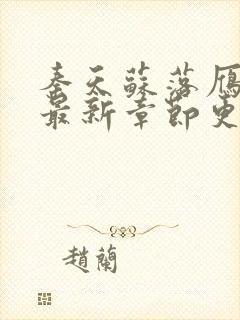 秦天蘇落雁
最新章節更
趙蘭